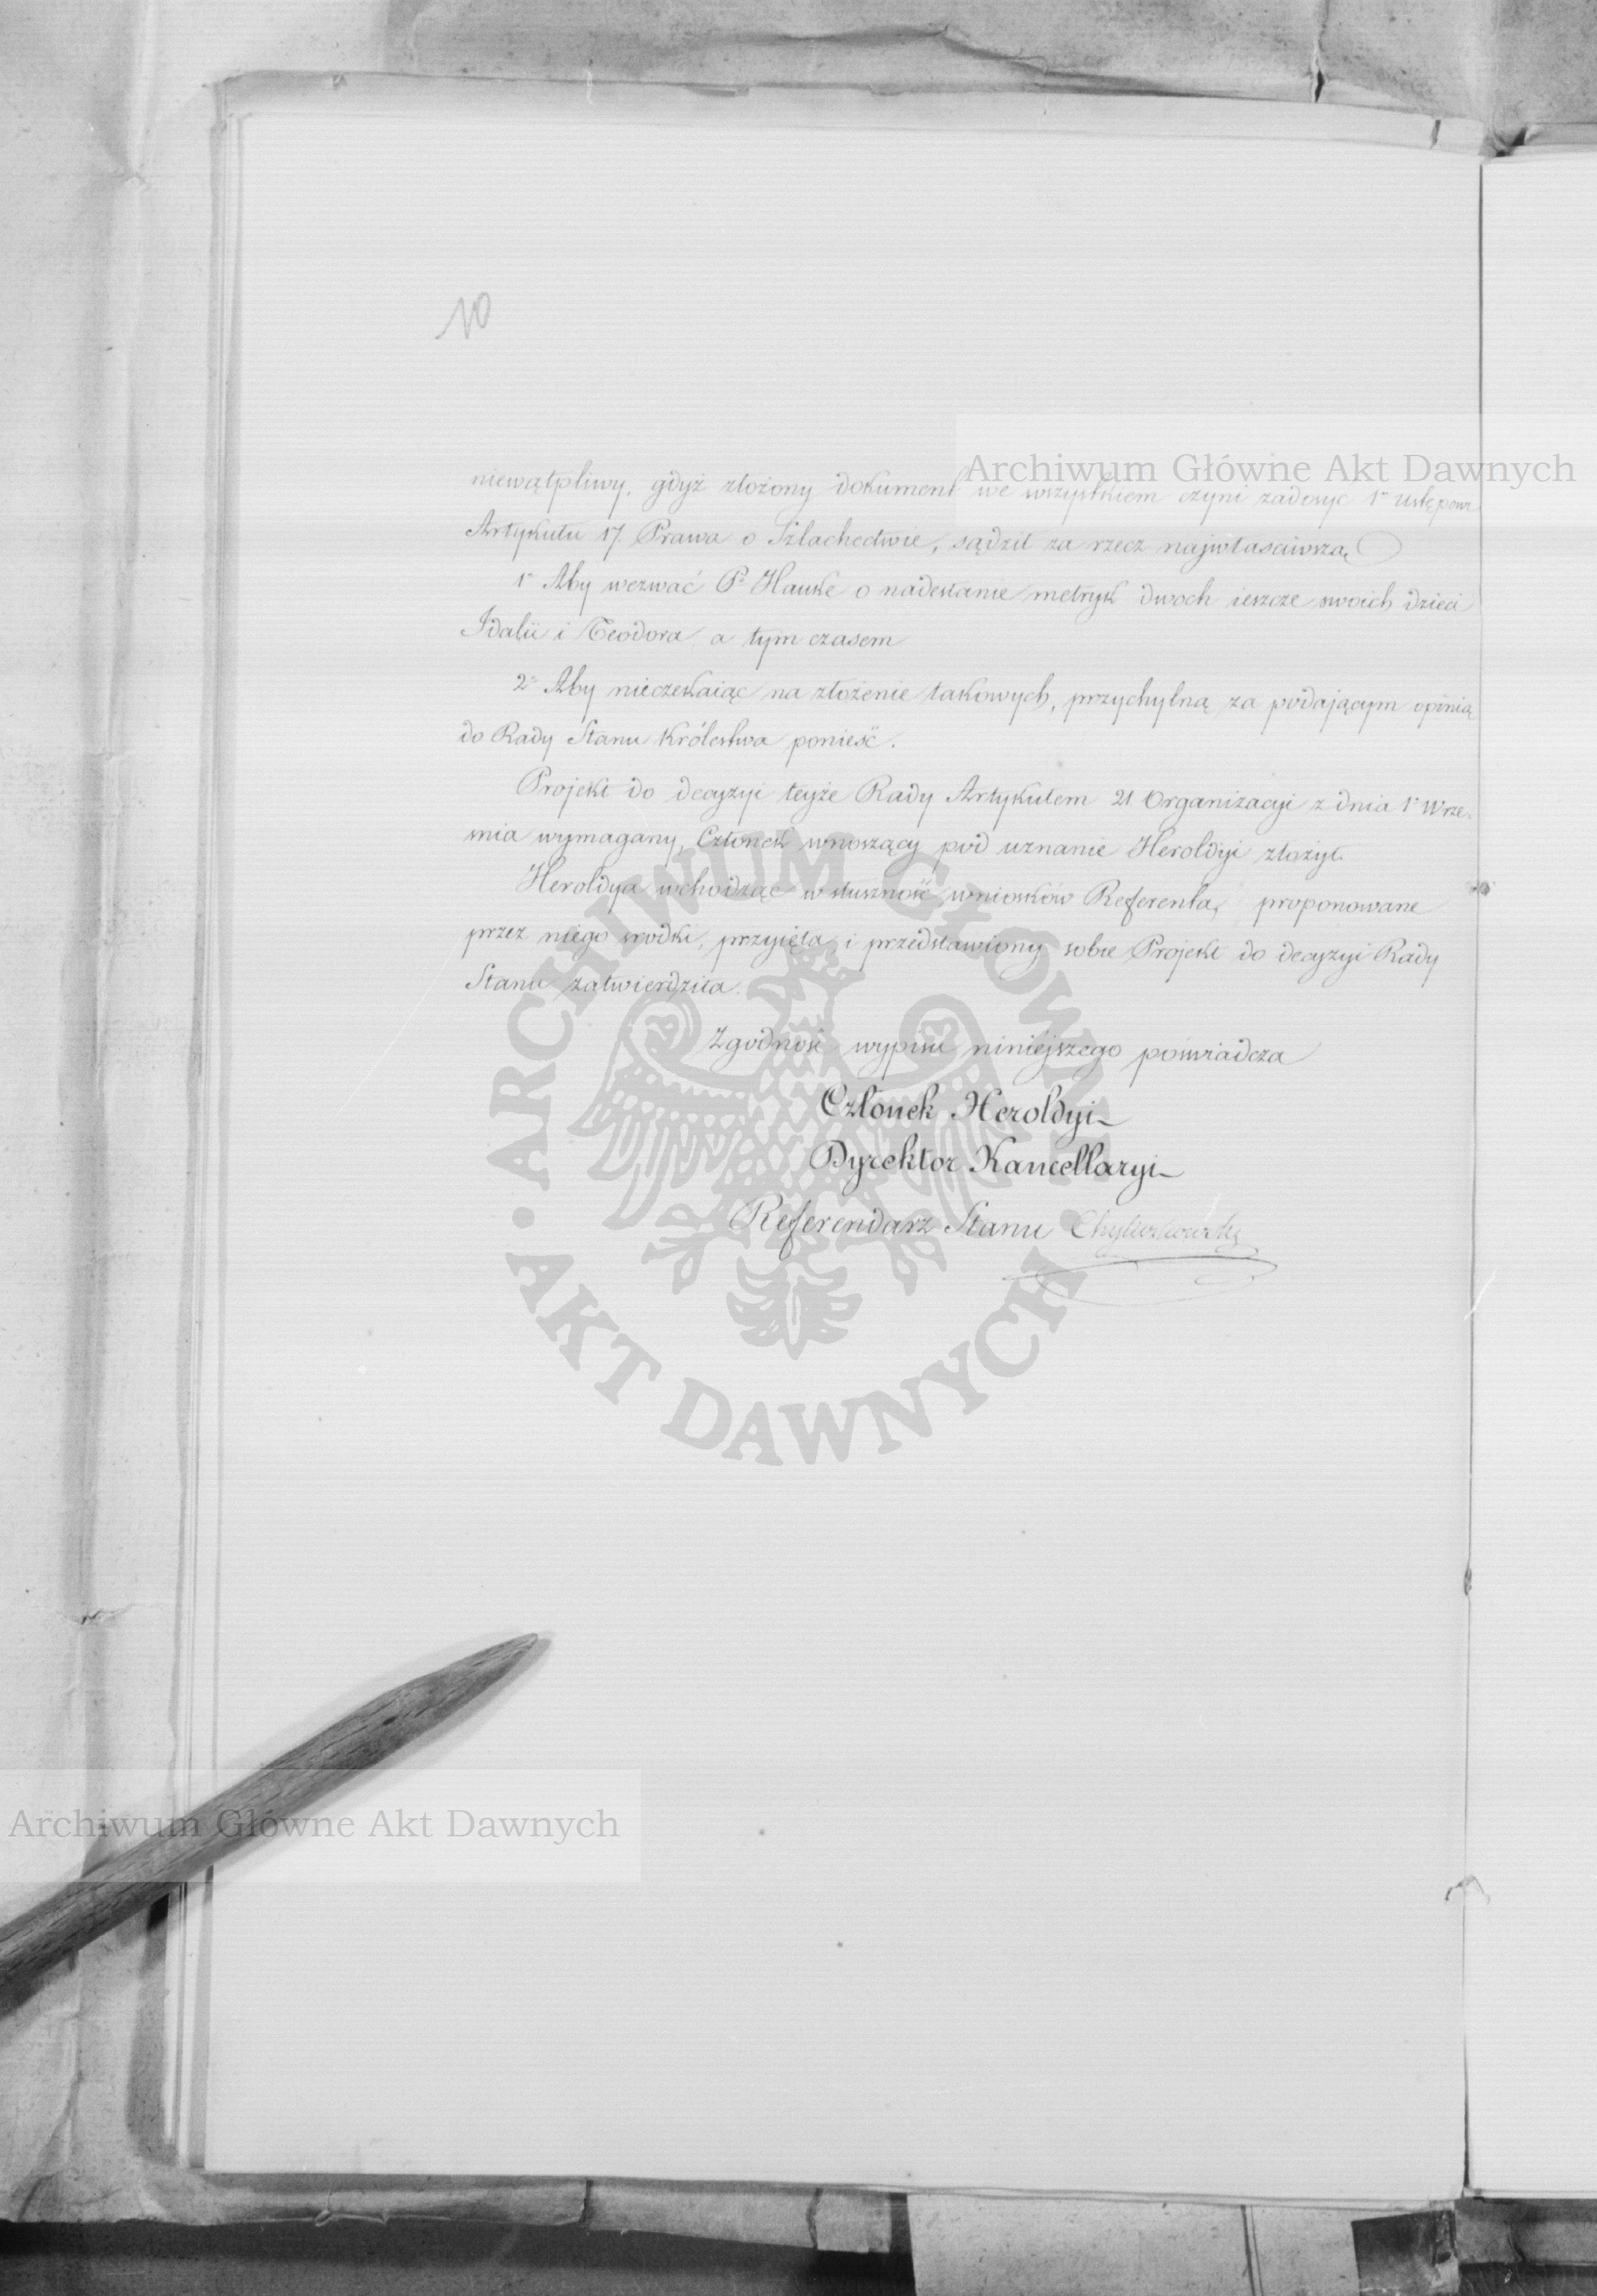 10
Archiwum Główne Akt Dawnych
niewątpliwy, gdyż złożony dokument we wszystkiem czyni zadosyć 1º ustępowi
Artykułu 17. Prawa o Szlachectwie, sądził za rzecz najwłasciwszą
1º Aby wezwać Pª Hauke o nadesłanie metryk dwoch ieszcze swoich dzieci
Idalii i Teodora, a tym czasem
2º Aby nieczekaiąc na złożenie takowych, przychylną za podającym opinią
do Rady Stanu Królestwa ponieść.
Projekt do decyzyi teyże Rady Artykułem 21 Organizacyi z dnia 1º Wrze-
snia wymagany, Członek wnoszący pod uznanie Heroldyi złożył.
Heroldya wchodząc w słuszność wniosków Referenta, proponowane
przez niego srodki, przyięła, i przedstawiony sobie Projekt do decyzyi Rady
Stanu zatwierdziła.
Zgodność wypisu niniejszego poświadcza
Członek Heroldyi
Dyrektor Kancellaryi
Referendarz Stanu
ARCHIWUM GŁÓWNE
AKT DAWNYCH
Archiwum Główne Akt Dawnych